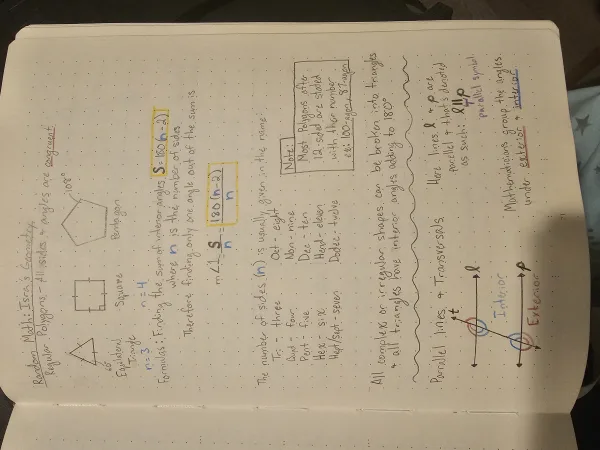 Random Math: Isra's Geometry
Regular Polygons - All sides + angles are congruent
60°
108°
Equilateral Triangle
Square
Pentagon
n = 3
n = 4
Formulas: Finding the sum of interior angles S = 180(n-2)
where n is the number of sides
Therefore finding only one angle out of the sum is
m∠1 = S/n = 180(n-2)/n
The number of sides (n) is usually given in the name:
Tri - three
Quad - four
Pent - five
Hex - six
Hept/Sept - seven
Oct - eight
Non - nine
Dec - ten
Hend - eleven
Dodec - twelve
Note:
Most Polygons after
12-sided are stated
with their number
ex: 100-agon, 87-agon
All complex or irregular shapes can be broken into triangles
+ all triangles have interior angles adding to 180°
Parallel lines + Transversals
t
l
Interior
p
Exterior
Here lines l + p are
parallel + that's denoted
as such: l||p
parallel symbol
Mathematicians group the angles
under exterior + interior